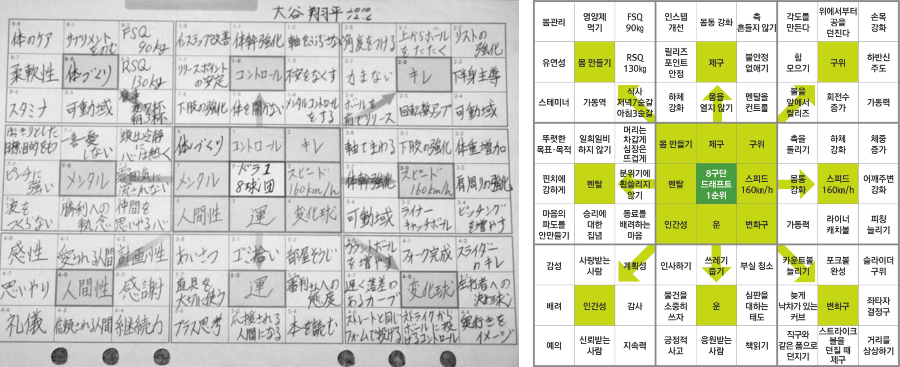 大谷 翔平 2010 12.6
体のケア サプリメントをのむ FSQ 90kg インステップ改善 体幹強化 軸をぶらさない 角度をつける 上からボールをたたく リストの強化
柔軟性 体づくり RSQ 130kg リリースポイントの安定 コントロール 不安をなくす 力まない キレ 下半身主導
スタミナ 可動域 食事 夜7杯 朝3杯 下肢の強化 体を開かない メンタルコントロールをする ボールを前でリリース 回転数アップ 可動域
はっきりとした目標、目的をもつ 一喜一憂しない 頭は冷静に心は熱く 体づくり コントロール キレ 軸でまわる 下肢の強化 体重増加
ピンチに強い メンタル 雰囲気に流されない メンタル ドラ1 8球団 スピード 160km/h 体幹強化 スピード 160km/h 肩周りの強化
波をつくらない 勝利への執念 仲間を思いやる心 人間性 運 変化球 可動域 ライナーキャッチボール ピッチングを増やす
感性 愛される人間 計画性 あいさつ ゴミ拾い 部屋そうじ カウントボールを増やす フォーク完成 スライダーのキレ
思いやり 人間性 感謝 道具を大切に使う 運 審判さんへの態度 遅く落差のあるカーブ 変化球 左打者への決め球
礼儀 信頼される人間 継続力 プラス思考 応援される人間になる 本を読む ストレートと同じフォームで投げる ストライクからボールに投げるコントロール 奥行きをイメージ
몸관리 영양제 먹기 FSQ 90kg 인스텝 개선 몸통 강화 축 흔들지 않기 각도를 만든다 위에서부터 공을 던진다 손목 강화
유연성 몸 만들기 RSQ 130kg 릴리즈 포인트 안정 제구 불안정 없애기 힘 모으기 구위 하반신 주도
스테미너 가동역 식사 저녁7숟갈 아침3숟갈 하체 강화 몸을 열지 않기 멘탈을 컨트롤 볼을 앞에서 릴리즈 회전수 증가 가동력
뚜렷한 목표·목적 일희일비 하지 않기 머리는 차갑게 심장은 뜨겁게 몸 만들기 제구 구위 축을 돌리기 하체 강화 체중 증가
핀치에 강하게 멘탈 분위기에 휩쓸리지 않기 멘탈 8구단 드래프트 1순위 스피드 160km/h 몸통 강화 스피드 160km/h 어깨주변 강화
마음의 파도를 안만들기 승리에 대한 집념 동료를 배려하는 마음 인간성 운 변화구 가동력 라이너 캐치볼 피칭 늘리기
감성 사랑받는 사람 계획성 인사하기 쓰레기 줍기 부실 청소 카운트볼 늘리기 포크볼 완성 슬라이더 구위
배려 인간성 감사 물건을 소중히 쓰자 운 심판을 대하는 태도 늦게 낙차가 있는 커브 변화구 좌타자 결정구
예의 신뢰받는 사람 지속력 긍정적 사고 응원받는 사람 책읽기 직구와 같은 폼으로 던지기 스트라이크 볼을 던질 때 제구 거리를 상상하기